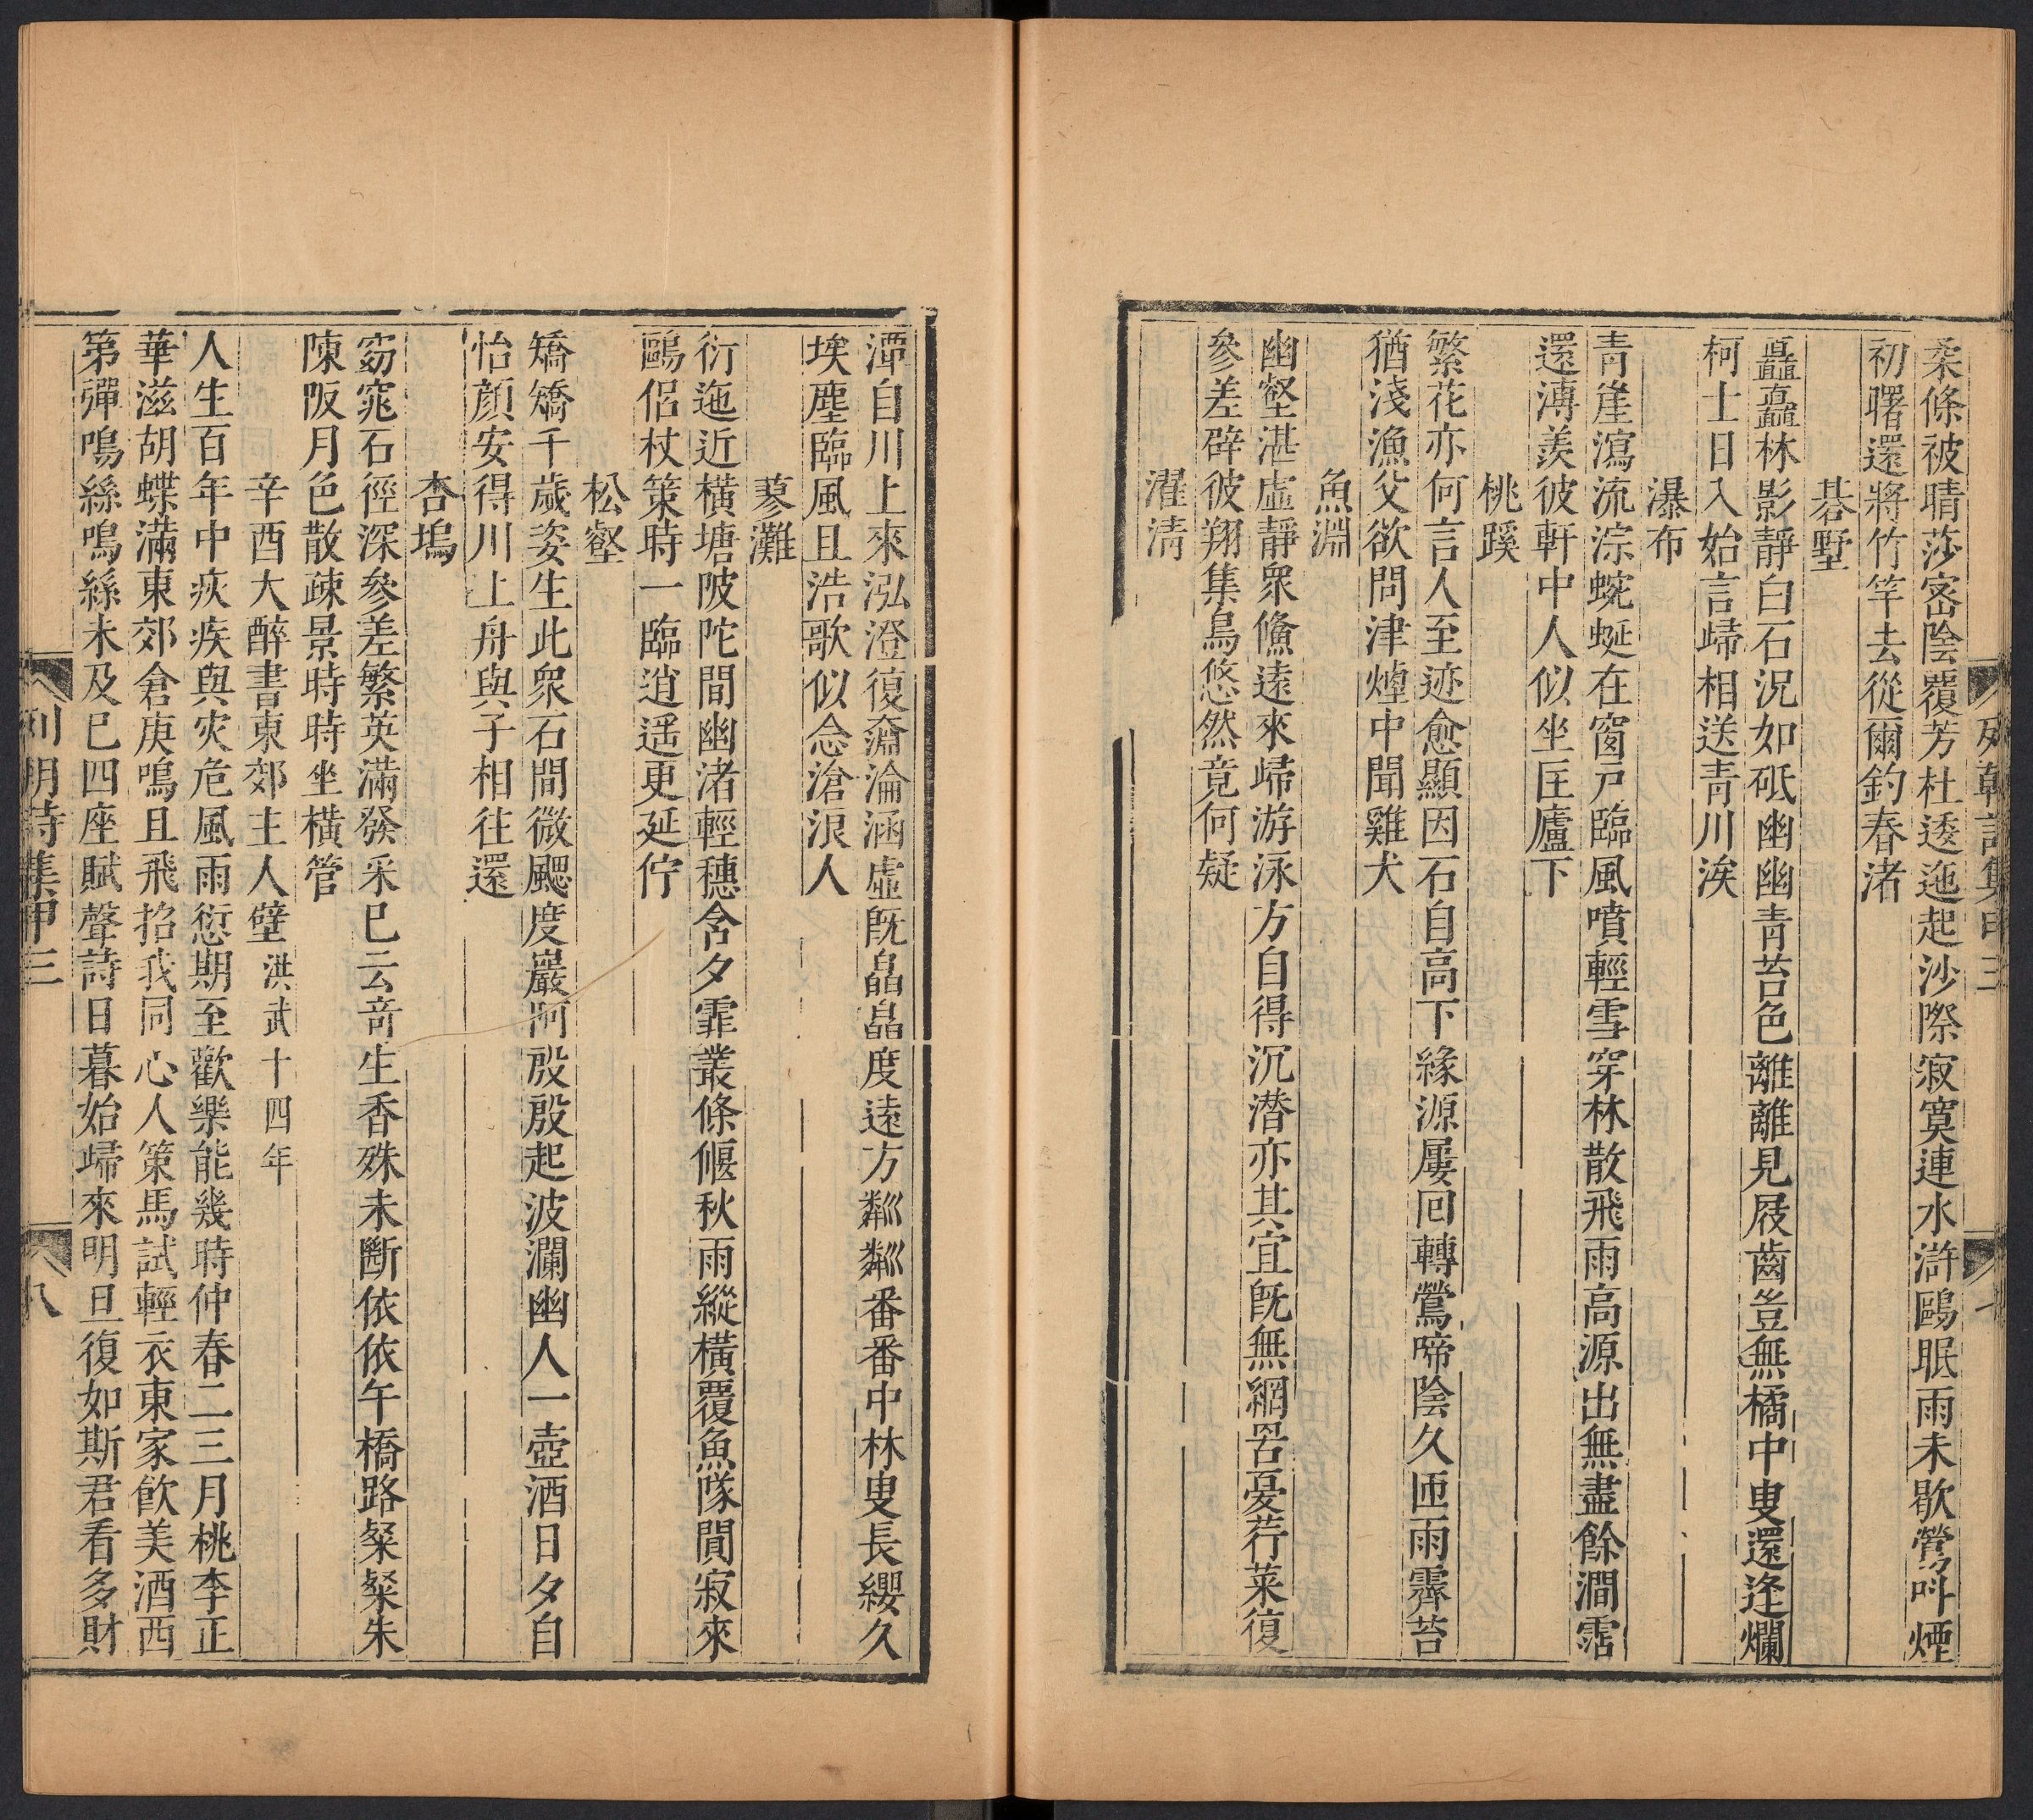 列朝詩集甲三
七
柔條被晴莎密陰覆芳杜逶迤起沙際寂寞連水滸鷗眠雨未歇鶯呌煙
初曙還將竹竿去從爾釣春渚
碁墅
矗矗林影靜白石況如砥幽幽靑苔色離離見屐齒豈無橘中叟還逢爛
柯士日入始言歸相送靑川涘
瀑布
靑崖瀉流淙蜿蜒在窗戸臨風噴輕雪穿林散飛雨高源出無盡餘澗霑
還溥羨彼軒中人似坐匡廬下
桃蹊
繁花亦何言人至迹愈顯因石自高下緣源屢回轉鶯啼陰久匝雨霽苔
猶淺漁父欲問津煙中聞雞犬
魚淵
幽壑湛虛靜衆儵遠來歸游泳方自得沉潛亦其宜旣無網罟憂荇菜復
參差辟彼翔集鳥悠然竟何疑
濯淸
潭自川上來泓澄復奫淪涵虛旣皛皛度遠方粼粼番番中林叟長纓久
埃塵臨風且浩歌似念滄浪人
蓼灘
衍迤近橫塘陂陀間幽渚輕穗含夕霏叢條偃秋雨縱橫覆魚隊閒寂來
鷗侶杖策時一臨逍遙更延佇
松壑
矯矯千歲姿生此衆石間微颸度巖阿殷殷起波瀾幽人一壺酒日夕自
怡顏安得川上舟與子相往還
杏塢
窈窕石徑深參差繁英滿發采已云竒生香殊未斷依依午橋路粲粲朱
陳阪月色散疎景時時坐橫管
辛酉大醉書東郊主人壁洪武十四年
人生百年中疢疾與灾危風雨愆期至歡樂能幾時仲春二三月桃李正
華滋胡蝶滿東郊倉庚鳴且飛招我同心人策馬試輕衣東家飮美酒西
第彈鳴絲鳴絲未及已四座賦聲詩日暮始歸來明旦復如斯君看多財
列朝詩集甲三
八